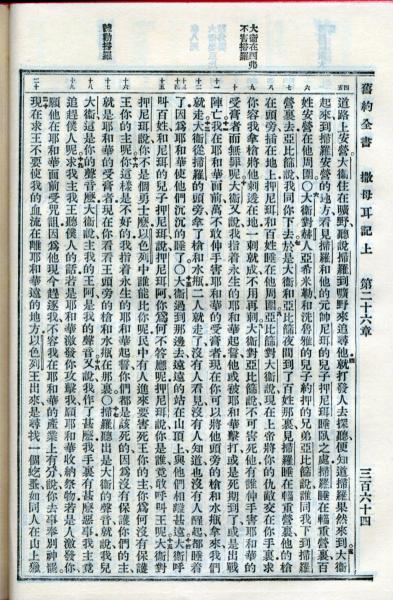 舊約全書 撒母耳記上 第二十六章 三百六十四
大衛在西弗
不害掃羅
道路上安營大衛住在曠野聽說掃羅到曠野來追尋他就打發人去探聽便知道掃羅果然來到大衛
起來到掃羅安營的地方看見掃羅和他的元帥尼珥的兒子押尼珥睡臥之處掃羅睡在輜重營裏百
姓安營在他周圍〇大衛對赫人亞希米勒和洗魯雅的兒子約押的兄弟亞比篩說誰同我下到掃羅
營裏去亞比篩說我同你下去於是大衛和亞比篩夜間到了百姓那裏見掃羅睡在輜重營裏他的槍
在頭旁插在地上押尼珥和百姓睡在他周圍亞比篩對大衛說現在上帝將你的仇敵交在你手裏求
你容我拿槍將他刺透在地一刺就成不用再刺大衛對亞比篩說不可害死他有誰伸手害耶和華的
受膏者而無罪呢大衛又說我指着永生的耶和華起誓他或被耶和華擊打或是死期到了或是出戰
陣亡我在耶和華面前萬不敢伸手害耶和華的受膏者現在你可以將他頭旁的槍和水瓶拿來我們
就走大衛從掃羅的頭旁拿了槍和水瓶二人就走了沒有人看見沒有人知道也沒有人醒起都睡着
了因爲耶和華使他們沉沉的睡了〇大衛過到那邊去遠遠的站在山頂上與他們相離甚遠大衛呼
叫百姓和尼珥的兒子押尼珥說押尼珥阿你爲何不答應呢押尼珥說你是誰竟敢呼叫王呢大衛對
押尼珥說你不是個勇士麼以色列中誰能比你呢民中有人進來要害死王你的主你爲何沒有保護
王你的主呢你這樣是不好的我指着永生的耶和華起誓你們都是該死的因爲沒有保護你們的主
就是耶和華的受膏者現在你看看王頭旁的槍和水瓶在那裏〇掃羅聽出是大衛的聲音就說我兒
大衛這是你的聲音麼大衛說主我的王阿是我的聲音又說我作了甚麼我手裏有甚麼惡事我主竟
追趕僕人呢求我主我王聽僕人的話若是耶和華激發你攻擊我願耶和華收納祭物若是人激發你
願他在耶和華面前受咒詛因爲他現今趕逐我不容我在耶和華的產業上有分說你去事奉別神罷
現在求王不要使我的血流在離耶和華遠的地方以色列王出來是尋找一個虼蚤如同人在山上獵